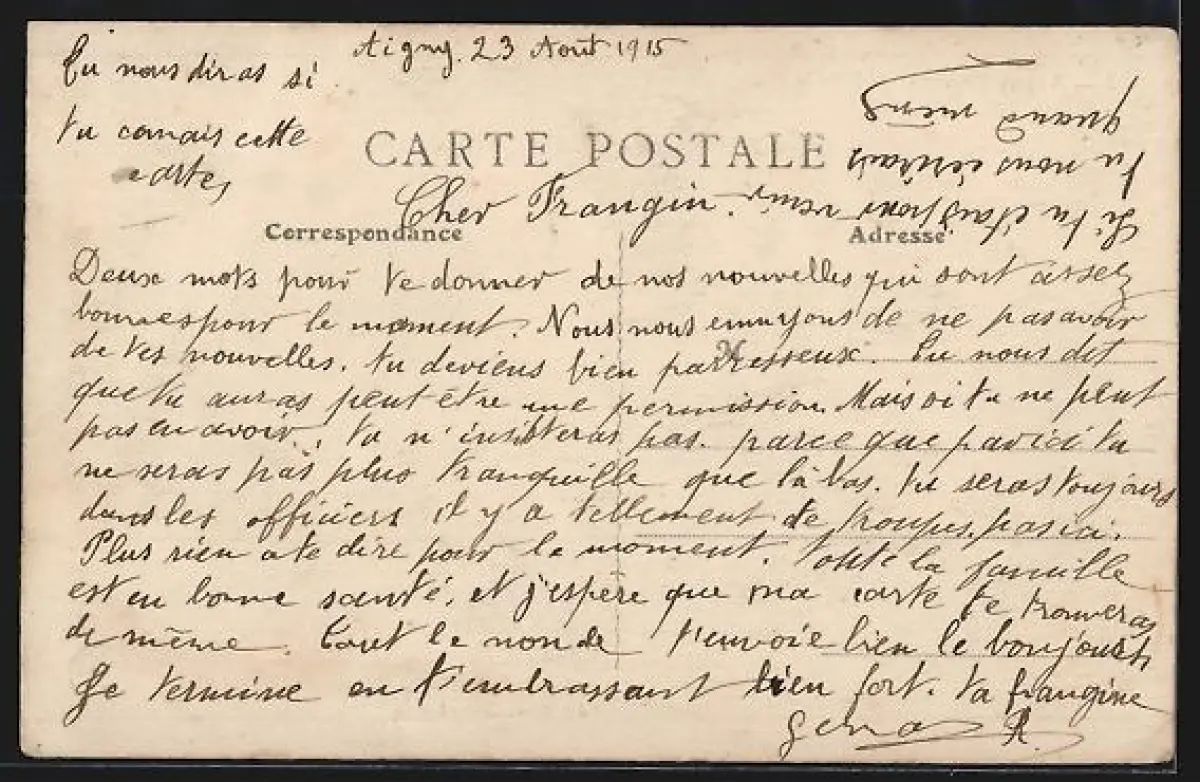 Aigny. 23 Aout 1915
Tu nous diras si
tu connais cette
carte,
CARTE POSTALE
Cher Frangin.
Correspondance
Adresse
Deux mots pour te donner de nos nouvelles qui sont assez
bonnes pour le moment. Nous nous ennuyons de ne pas avoir
de tes nouvelles. tu deviens bien parresseux. Tu nous dit
que tu auras peut être une permission. Mais si tu ne peut
pas en avoir, tu n'insisteras pas. parce que par ici tu
ne seras pas plus tranquille que là bas. tu seras toujours
dans les officiers il y a tellement de troupes par ici.
Plus rien a te dire pour le moment. toute la famille
est en bonne santé, et j'espère que ma carte te trouveras
de même. Tout le monde t'envoie bien le bonjours
Je termine en t'embrassant bien fort. ta frangine
R
Si tu venir
tu nous écrirais
quand même